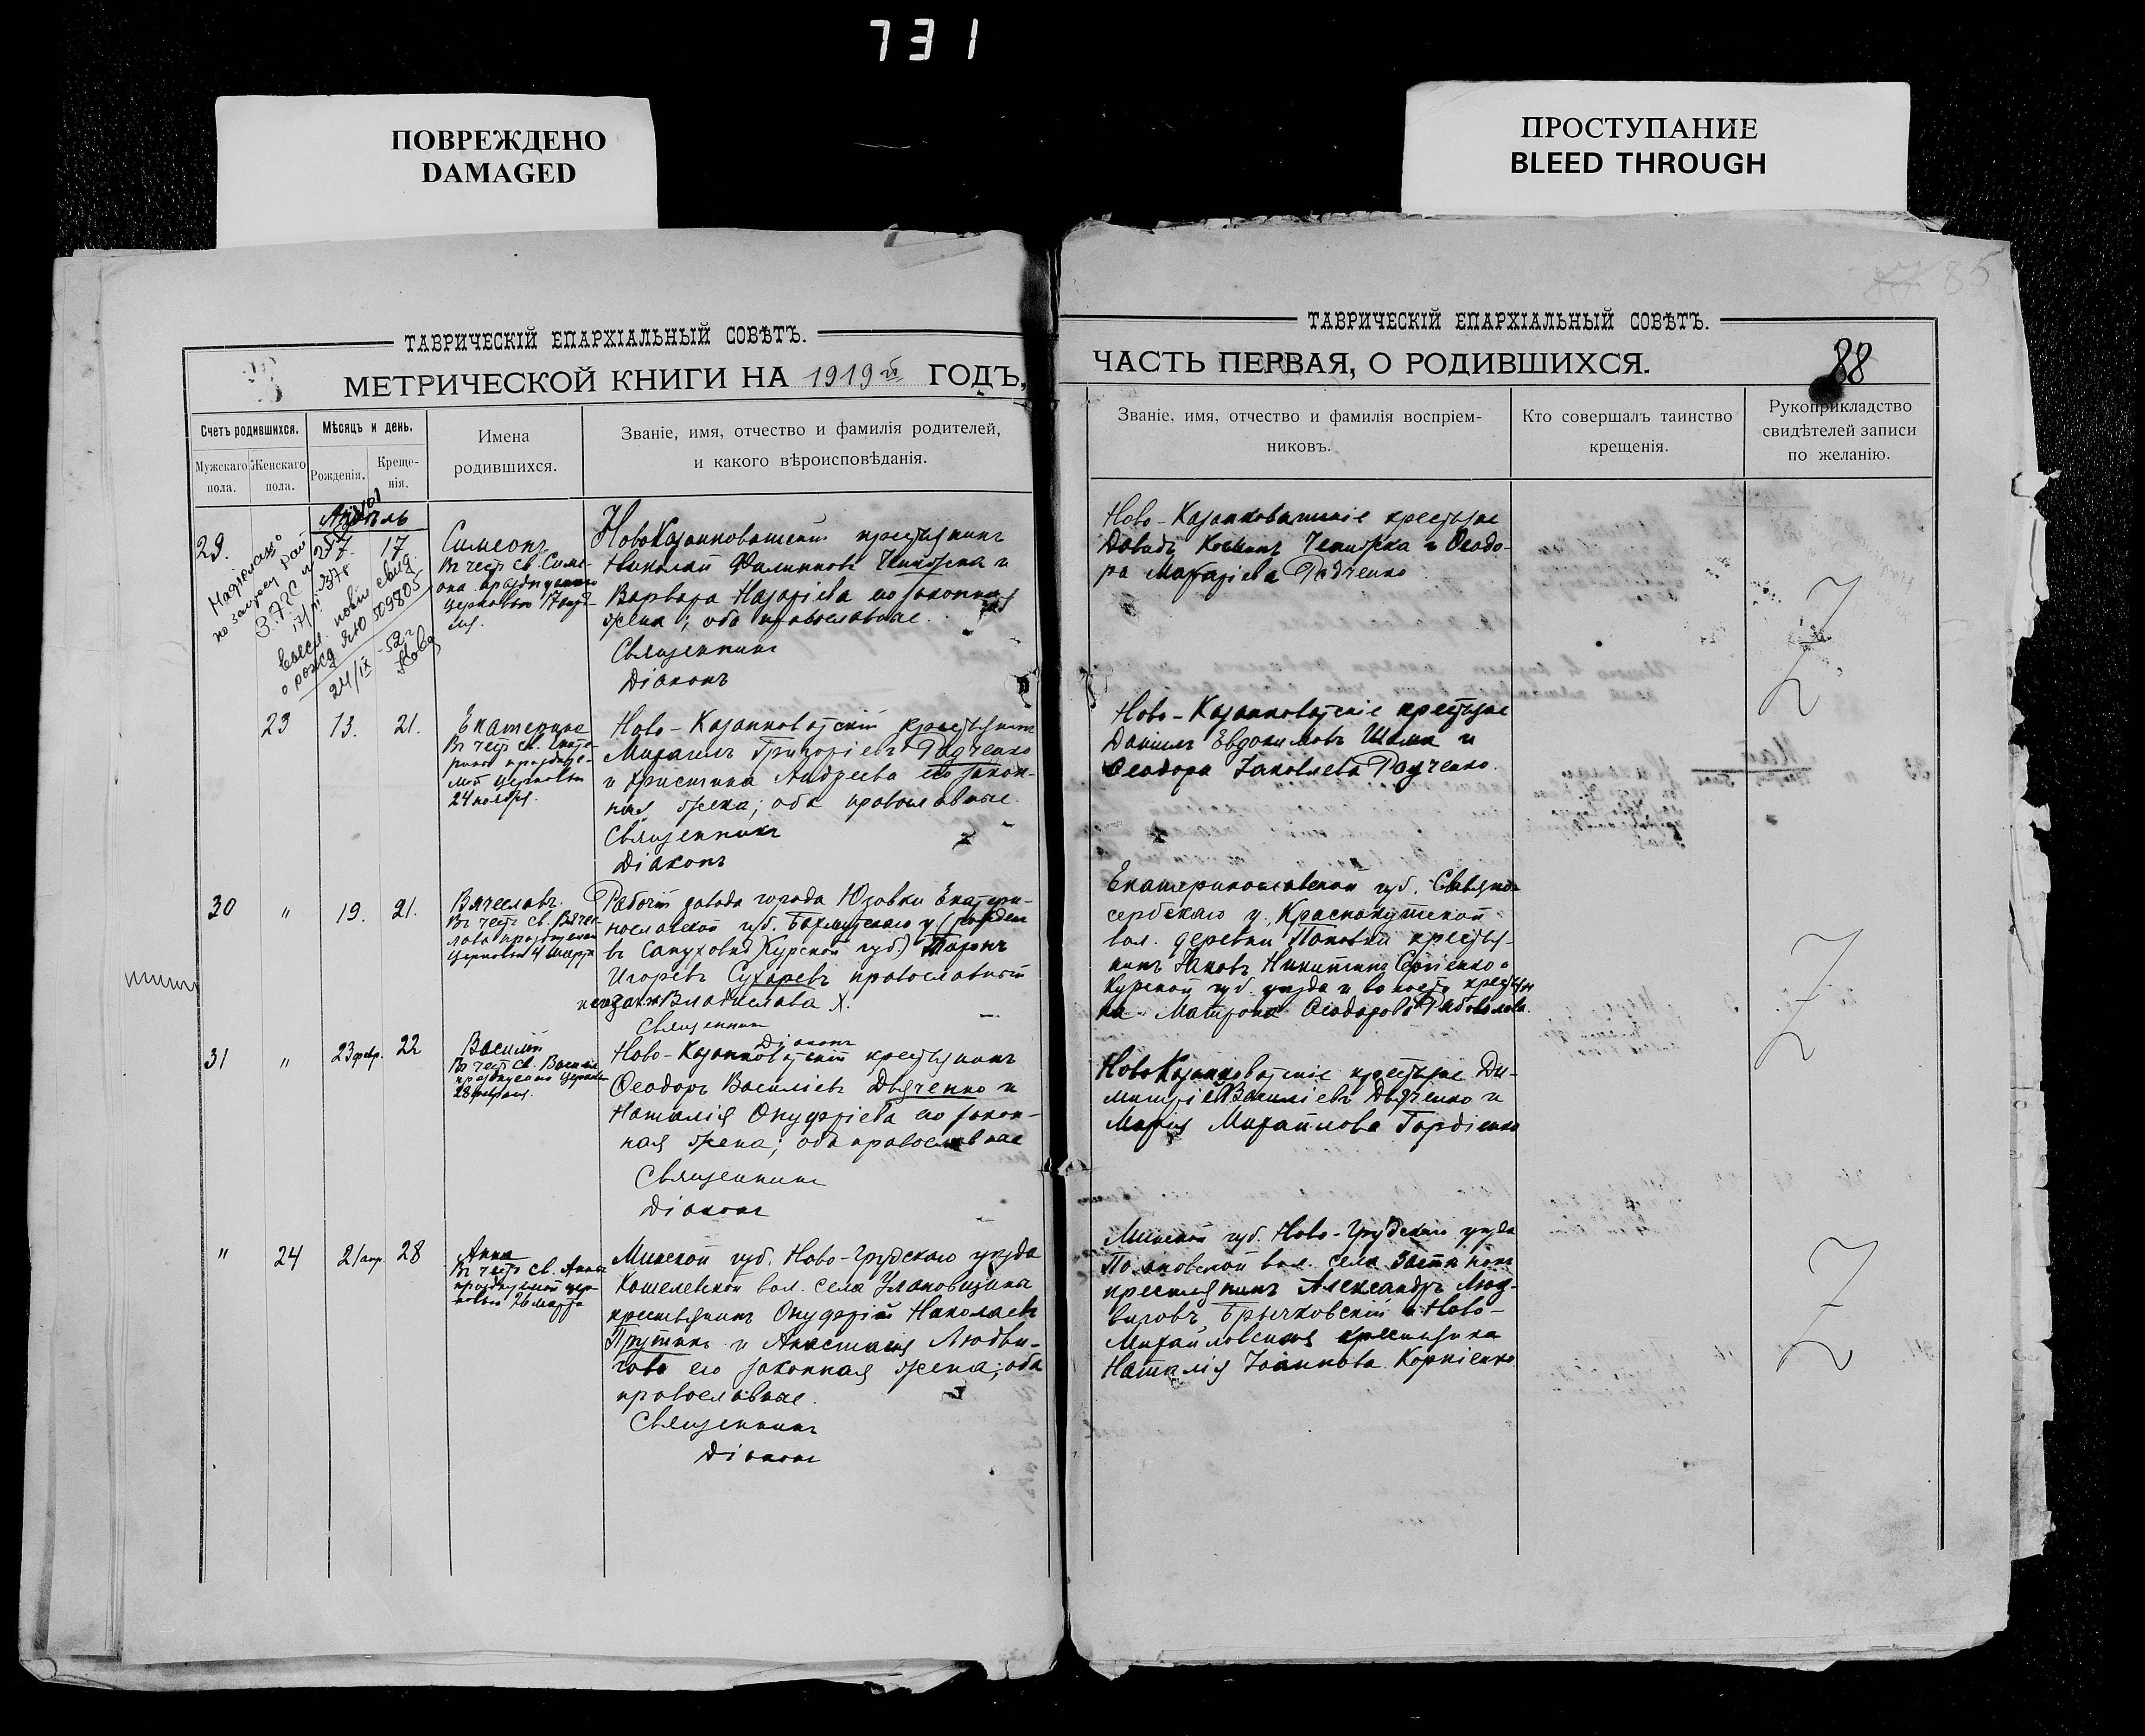 731
ПОВРЕЖДЕНО
DAMAGED
ПРОСТУПАНИЕ
BLEED THROUGH
85
ТАВРИЧЕСКІЙ ЕПАРХІАЛЬНЫЙ СОВѢТЪ.
МЕТРИЧЕСКОЙ КНИГИ НА 1919й ГОДЪ,
Счетъ родившихся.
Мужскаго пола.
Женскаго пола.
Мѣсяцъ и день.
Рожденія.
Креще-
нія.
Имена
родившихся.
Званіе, имя, отчество и фамилія родителей,
и какого вѣроисповѣданія.
Апрѣль
29.
17
Симеонъ
Въ честь св. Симе-
она празднуемаго
церковью 17 апр-
еля.
о рожд ЯЮ 509805
24/IX - 52г
НовоКазанковатскій крестьянинъ
Николай Филипповъ и
Варвара Назаріева его законная
жена; оба православные.
Священникъ
Діаконъ
23
13.
21.
Екатерина
Въ честь св. Екате-
рины празднуе-
мой церковью
24 ноября.
Ново-Казанковатскій крестьянинъ
Михаилъ Григоріевъ Радченко
и Христина Андреева его закон-
ная жена; оба православные.
Священникъ
Діаконъ
30
"
19.
21.
Вячеславъ.
Въ честь св. Вячес-
лава празднуемаго
церковью 4 марта
Рабочій завода города Юзовки Екатери-
нославской губ. Бахмутскаго у. (рожден
въ Курской губ.)
Игоревъ Сухаревъ православный
Владиславова X.
Священникъ
Діаконъ
31
"
23 февр.
22
Василій
Въ честь св. Василія
празднуемаго церковью
28 февраля.
Ново-Казанковатскій крестьянинъ
Ѳеодоръ Василіевъ Дьяченко и
Наталія Онуфріева его закон-
ная жена; оба православные
Священникъ
Діаконъ
"
24
21 апр.
28
Анна
Въ честь св. Анны
празднуемой цер-
ковью 26 марта
Минской губ. Ново-Грудскаго уѣзда
Кошелевской вол. села Улановщина
крестьянинъ Онуфрій Николаевъ
Прутикъ и Анастасія Людви-
гова его законная жена; оба
православные.
Священникъ
Діаконъ
ТАВРИЧЕСКІЙ ЕПАРХІАЛЬНЫЙ СОВѢТЪ.
ЧАСТЬ ПЕРВАЯ, О РОДИВШИХСЯ.
88
Званіе, имя, отчество и фамилія воспріем-
никовъ.
Кто совершалъ таинство
крещенія.
Рукоприкладство
свидѣтелей записи
по желанію.
Ново-Казанковатскіе крестьяне
Давидъ Косминъ и Ѳеодо-
ра Радченко
Ново-Казанковатскіе крестьяне
Даніилъ Евдокимовъ Шама и
Ѳеодора Іаковлева Радченко.
Екатеринославской губ. Славяно-
сербскаго у. Краснокутской
вол. деревни крестья-
нинъ Іаковъ Никитинъ Сергіенко и
Курской губ. уѣзда и волости крестьян
ка Матрона Ѳеодорова
НовоКазанковатскіе крестьяне Ди-
митрій Василіевъ Дьяченко и
Марія Михайлова Гордіенко
Минской губ. Ново-Грудскаго уѣзда
вол. села
крестьянинъ Александръ Люд-
виговъ Брычковскій и Ново-
Михайловская крестьянка
Наталія Іоаннова Корніенко.